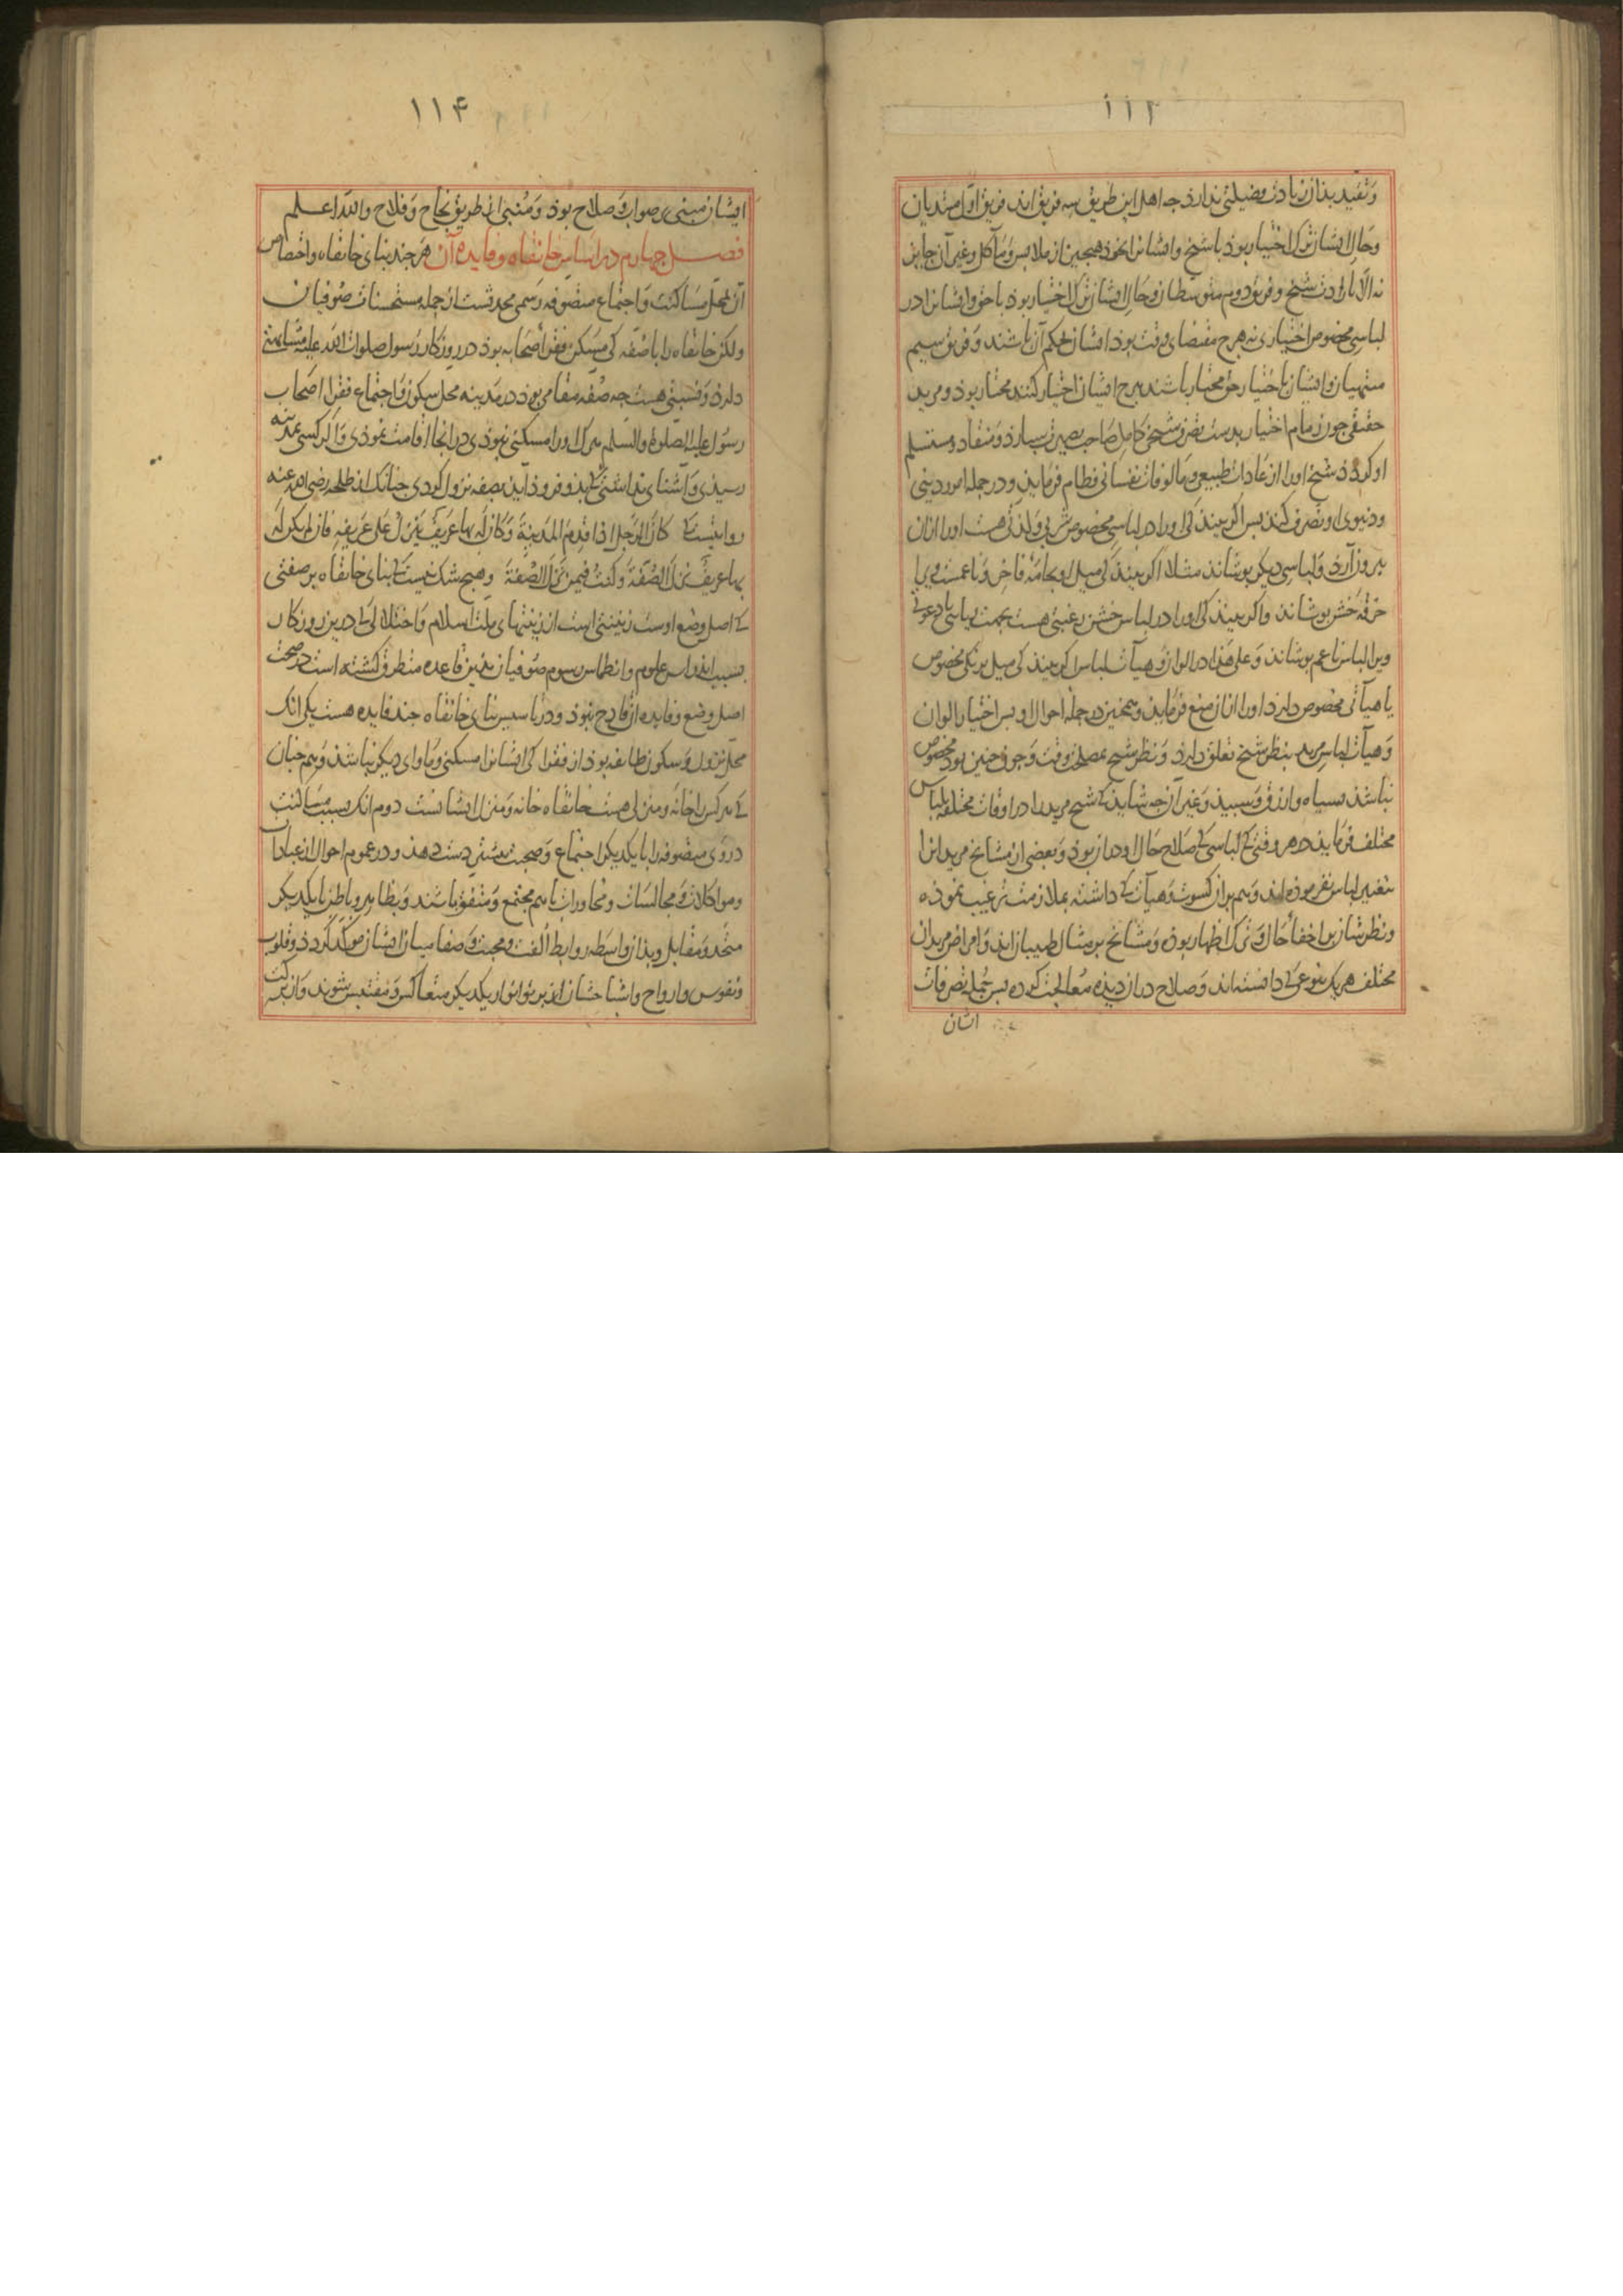 ۱۱۳
و تقید بذان زیادت فضیلتی ندارذ جه اهل این طریق سه فریق اند فریق اول مبتدیان
و حال ایشان ترک اختیار بوذ با شیخ و ایشانرا بخوذ هیجیز از ملابس و مآکل و غیر آن جایز
نه الا بارادت شیخ و فریق دوم متوسطان و حال ایشان ترک اختیار بوذ با حق و ایشانرا در
لباسی مخصوص اختیاری نه هرج مقتضای وقت بوذ ایشان بحکم آن باشند و فریق سیم
منتهیان و ایشان باختیار حق مختار باشند هرج ایشان اختیار کنند مختار بوذ و مرید
حقیقی جون زمام اختیار بدست تصرف شیخی کامل صاحب بصیرت سپارذ و منقاد و مستسلم
او کردذ شیخ او را از عادات طبیعی و مالوفات نفسانی فطام فرمایذ و در جمله امور دینی
و دنیوی او تصرف کند بس اکر بیند کی او را در لباسی مخصوص شربی و لذتی هست او را ازان
بیرون آرذ و لباسی دیکر بوشاند مثلا اکر بیند کی میل او بجامه فاخر و ناعمست ویرا
خرقه خشن بوشاند و اکر بیند کی او را در لباس خشن رغبتی هست بجهت ریایی یا دعوئی
ویرا لباس ناعم بوشاند و علی هذا در الوان و هیآت لباس اکر بیند کی میل برنکی مخصوص
یا هیآتی مخصوص دارذ او را ازان منع فرمایذ و همجنین در جمله احوال او بس اختیار الوان
و هیآت لباس مرید بنظر شیخ تعلق دارذ و نظر شیخ بمصلحت وقت و جون جنین بوذ مخصوص
نباشد بسیاه و ازرق و سبید و غیر آن جه شاید کی شیخ مرید را در اوقات مختلفه بلباس
مختلف فرمایذ در هر وقتی کی لباسی کی صلاح حال او دران بوذ و بعضی از مشایخ مریدانرا
بتغییر لباس نفرموذه اند و هم بران کسوت و هیآت کی داشته بملازمت ترغیب نموذه
و نظرشان بر اخفاء حال و ترک اظهار بوذه و مشایخ بر مثال طبیبان اند و امراض مریدان
مختلف هر یک بنوعی کی دانسته اند و صلاح دران دیذه معالجت کرده بس جمله تصرفات
ایشان
۱۱۴
ایشان مبنی بر صواب و صلاح بوذ و منبی از طریق نجاح و فلاح والله اعلم
فصل جهارم در اساس خانقاه و فایده آن هر جند بنای خانقاه و اختصاص
آن بمحل مساکنت و اجتماع متصوفه رسمی محدثست از جمله مستحسنات صوفیان
ولکن خانقاه را با صفه کی مسکن فقراء صحابه بوذ در روزکار رسول صلوات الله علیه مشابهتی
دارذ و نسبتی هست جه صفه مقامی بوذ در مدینه محل سکون و اجتماع فقراء اصحاب
رسول علیه الصلوة والسلم هرک او را مسکنی نبوذی در انجا اقامت نموذی و اکر کسی بمدینه
رسیذی و آشنایی نداشتی کی بذو فروذ آید بصفه نزول کردی جنانک از طلحه رضی الله عنه
روایتست کی کان الرجل اذا قدم المدینة و کان له بها عریف ینزل علی عریفه فان لم یکن له
بها عریف نزل الصفة و کنت فیمن نزل الصفة و هیج شک نیست کی بنای خانقاه بر صفتی
کی اصل وضع اوست زینتی است از زینتهای ملت اسلام و اختلالی کی درین روزکار
بسبب اندراس علوم و انطماس رسوم صوفیان بذین قاعده متطرق کشته است در صحت
اصل وضع و فایده از قادح نبوذ و در تاسیس بنای خانقاه جند فایده هست یکی انک
محل نزول و سکون طایفه بوذ از فقرا کی ایشانرا مسکنی و ماوای دیکر نباشذ و همجنان
کی هر کس را خانه و منزلی هست خانقاه خانه و منزل ایشانست دوم انک بسبب مساکنت
در وی متصوفه را با یکدیکر اجتماع و صحبت بیشتر دست دهذ و در عموم احوال از عبادات
و مواکلات و مجالسات و محاورات باهم مجتمع و متفق باشند و بظاهر و باطن با یکدیکر
متحد و متقابل و بذان واسطه روابط الفت و محبت و صفا میان ایشان موکد کردذ و قلوب
و نفوس و ارواح و اشباحشان از برتو انوار یکدیکر متعاکس و مقتبس شوند و از برکت